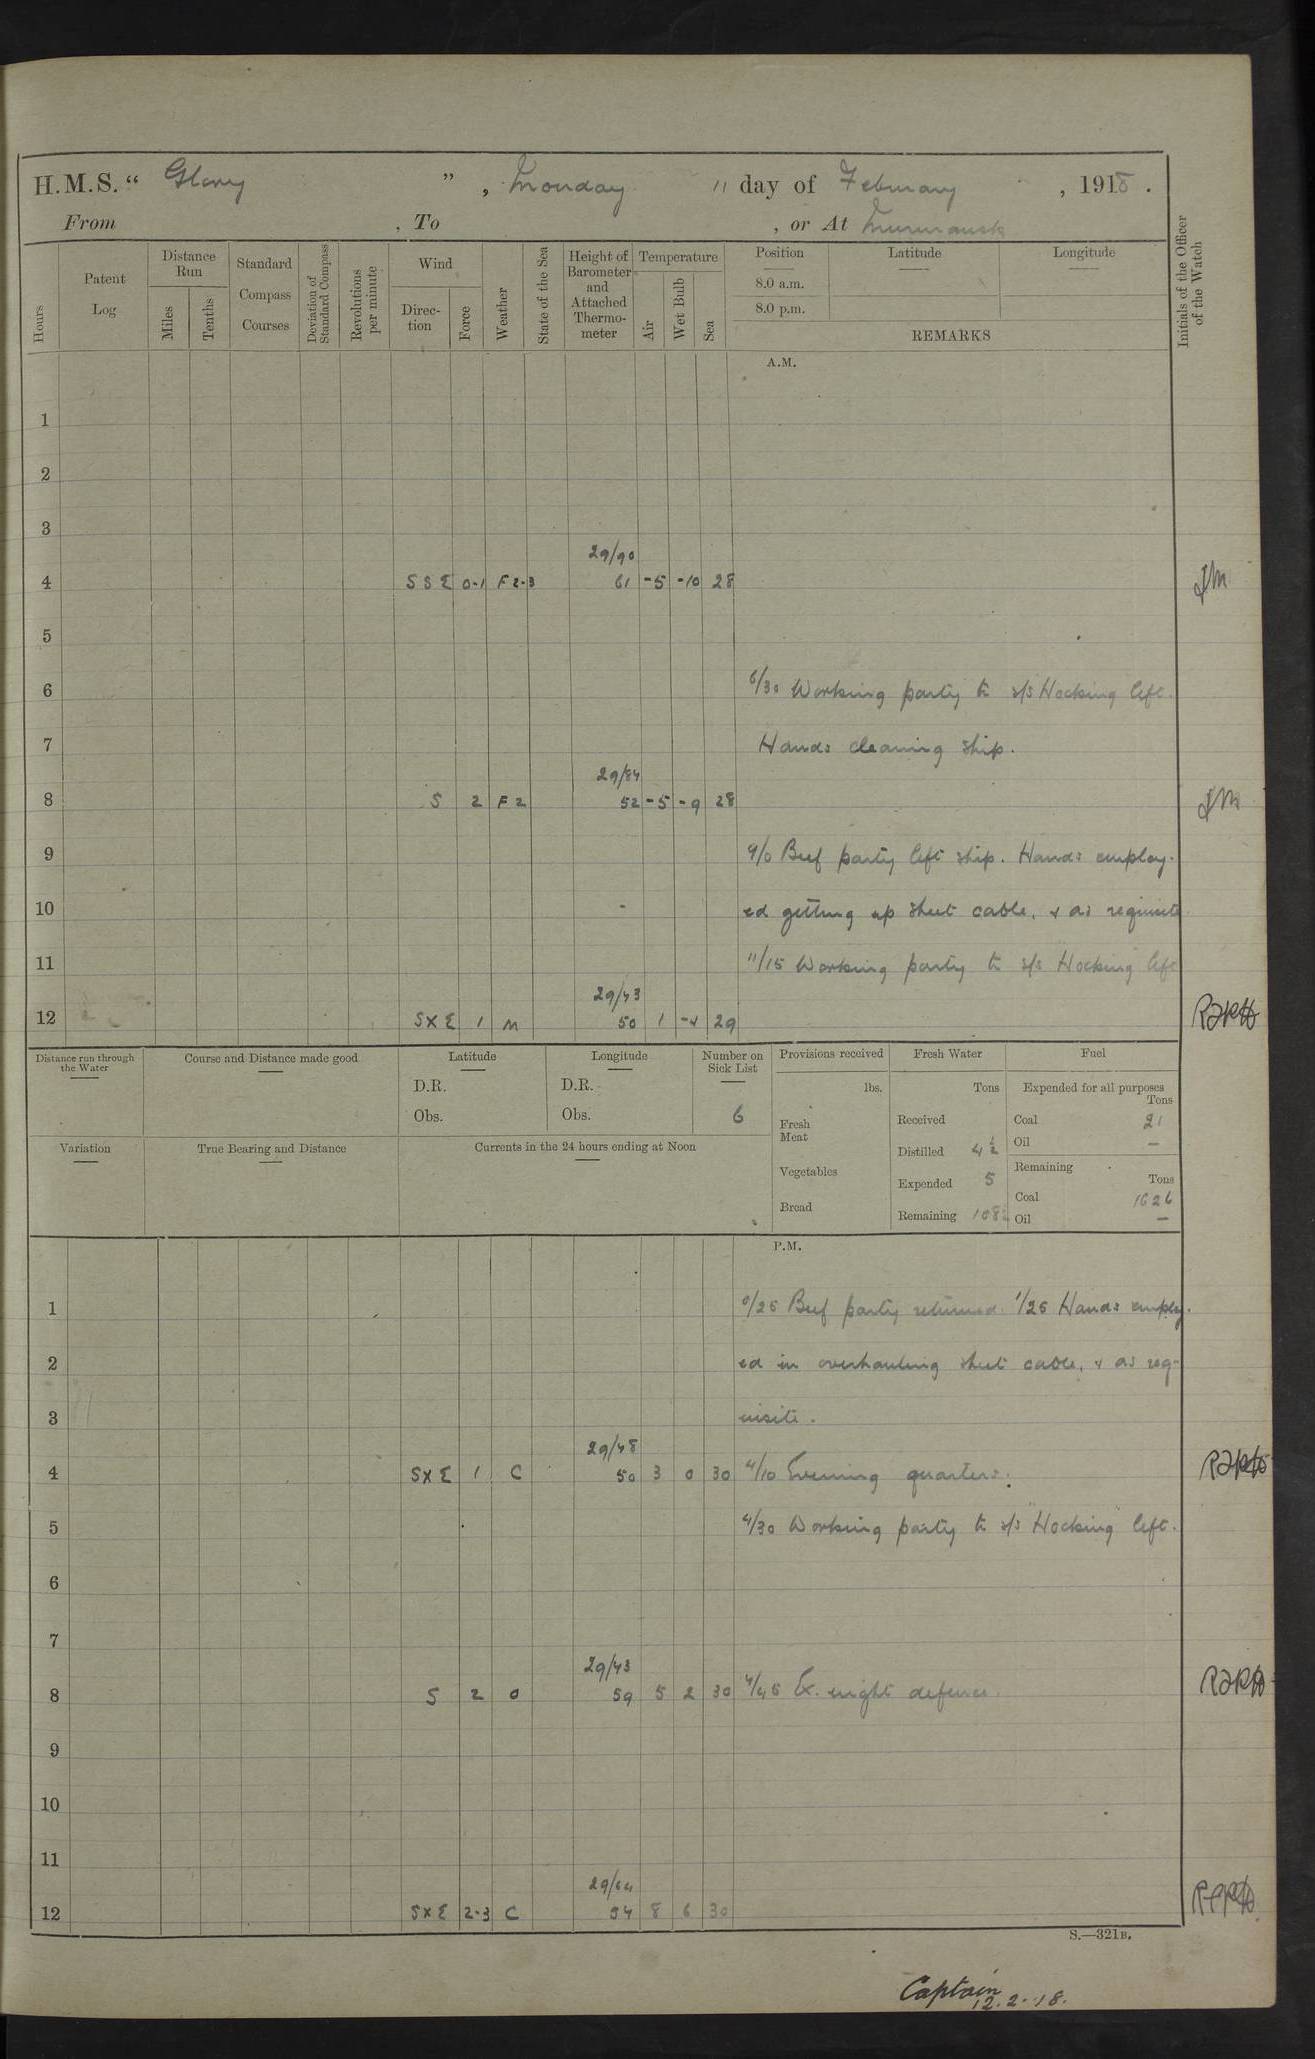 H.M.S. " Glory " , Monday 11 day of February , 1918 .
From , To , or At Murmansk
Hours
Patent Log
Distance Run
Miles
Tenths
Standard Compass Courses
Deviation of Standard Compass
Revolutions per minute
Wind
Direc-tion
Force
Weather
State of the Sea
Height of Barometer and Attached Thermo-meter
Temperature
Air
Wet Bulb
Sea
Position
8.0 a.m.
8.0 p.m.
Latitude
Longitude
REMARKS
Initials of the Officer of the Watch
A.M.
1
2
3
29/90
4 SSE 0-1 F 2-3 61 -5 -10 28
5
6 6/30 Working party to s/s Hocking left.
7 Hands cleaning ship.
29/84
8 S 2 F 2 52 -5 -9 28
9 9/0 Beef party left ship. Hands employ-
10 ed getting up sheet cable, & as requisite
11 11/15 Working party to s/s Hocking left
29/43
12 SXE 1 M 50 1 -4 29
Distance run through the Water
Course and Distance made good
Latitude
D.R.
Obs.
Longitude
D.R.
Obs.
Number on Sick List
6
Provisions received
lbs.
Fresh Meat
Vegetables
Bread
Fresh Water
Tons
Received
Distilled 4½
Expended 5
Remaining
Fuel
Expended for all purposes
Tons
Coal 21
Oil —
Remaining
Tons
Coal 1626
Oil —
Variation
True Bearing and Distance
Currents in the 24 hours ending at Noon
P.M.
1 0/25 Beef party returned. 1/25 Hands employ-
2 ed in overhauling sheet cable, & as req-
3 uisite.
29/48
4 SXE 1 C 50 3 0 30 4/10 Evening quarters.
5 4/30 Working party to s/s "Hocking" left.
6
7
29/43
8 S 2 O 59 5 2 30 7/45 Ex. night defence.
9
10
11
29/44
12 SXE 2-3 C 54 8 6 30
S.—321B.
Captain
12.2.18.